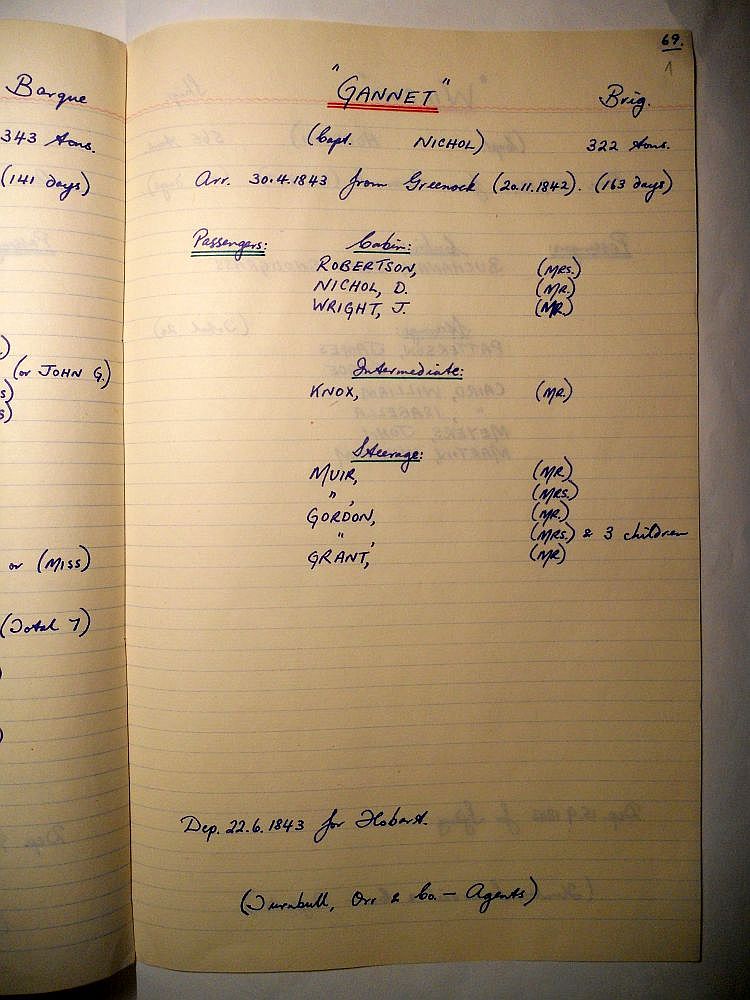 Barque
343 tons.
(141 days)
(or JOHN G.)
or (MISS)
(Total 7)
69.
1
"GANNET"
Brig.
(Capt. NICHOL)
322 tons.
Arr. 30.4.1843 from Greenock (20.11.1842). (163 days)
Passengers: Cabin:
ROBERTSON, (MRS.)
NICHOL, D. (MR.)
WRIGHT, J. (MR.)
Intermediate:
KNOX, (MR.)
Steerage:
MUIR, (MR.)
" , (MRS.)
GORDON, (MR.)
" , (MRS.) & 3 children
GRANT, (MR)
Dep. 22.6.1843 for Hobart.
(Turnbull, Orr & Co. - Agents)